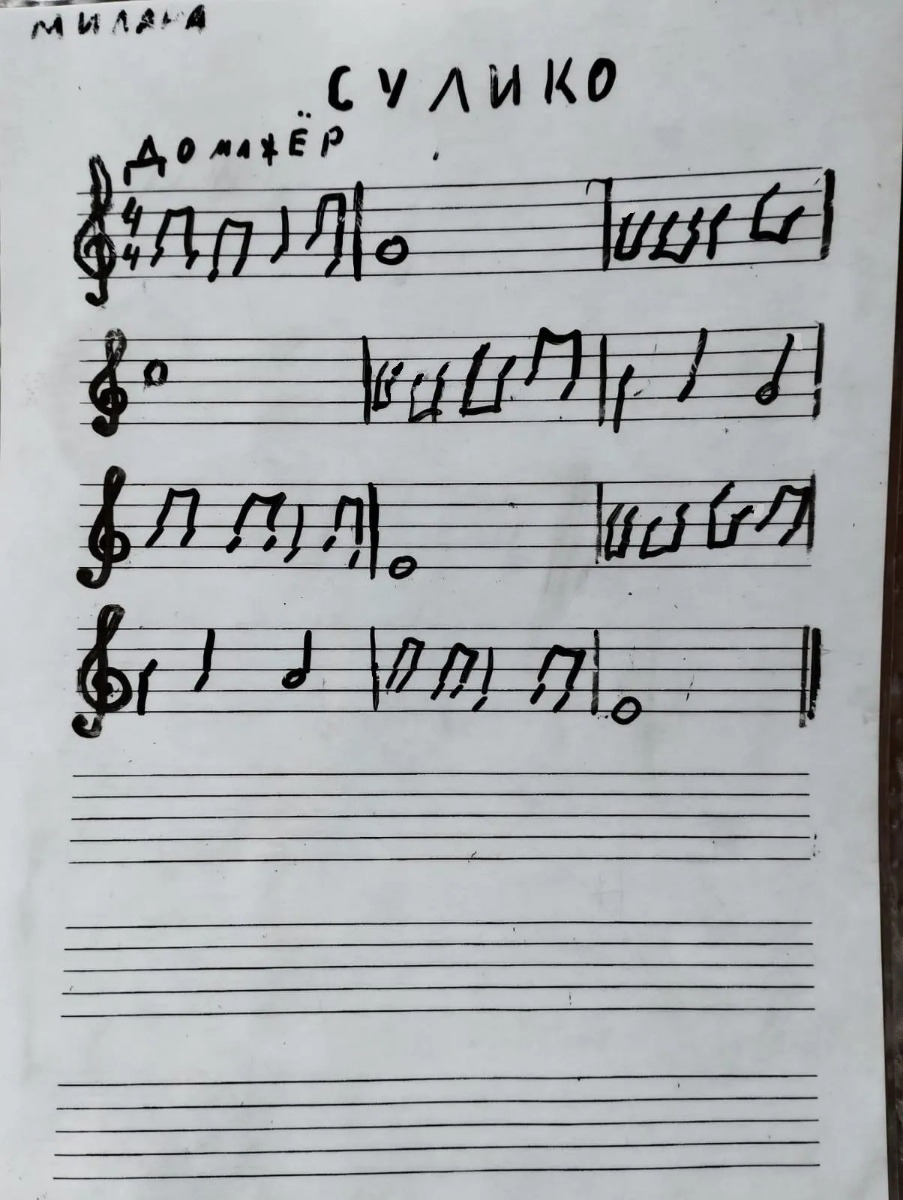 МИЛАНА
СУЛИКО
ДО МАЖЁР
4
4